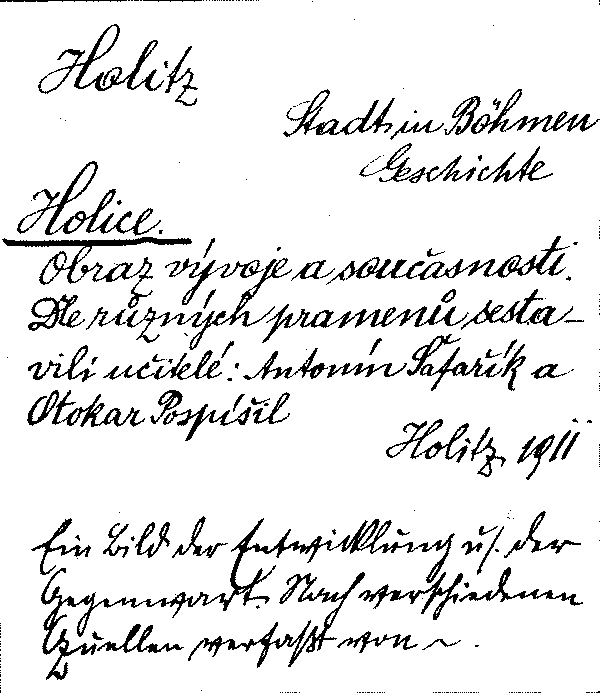 Holitz
Stadt in Böhmen
Geschichte
Holice.
Obraz vývoje a současnosti.
Dle různých pramenů sesta-
vili učitelé: Antonín Šafařík a
Otokar Pospíšil
Holitz, 1911
Ein Bild der Entwicklung u. der
Gegenwart. Nach verschiedenen
Quellen verfaßt von ~.